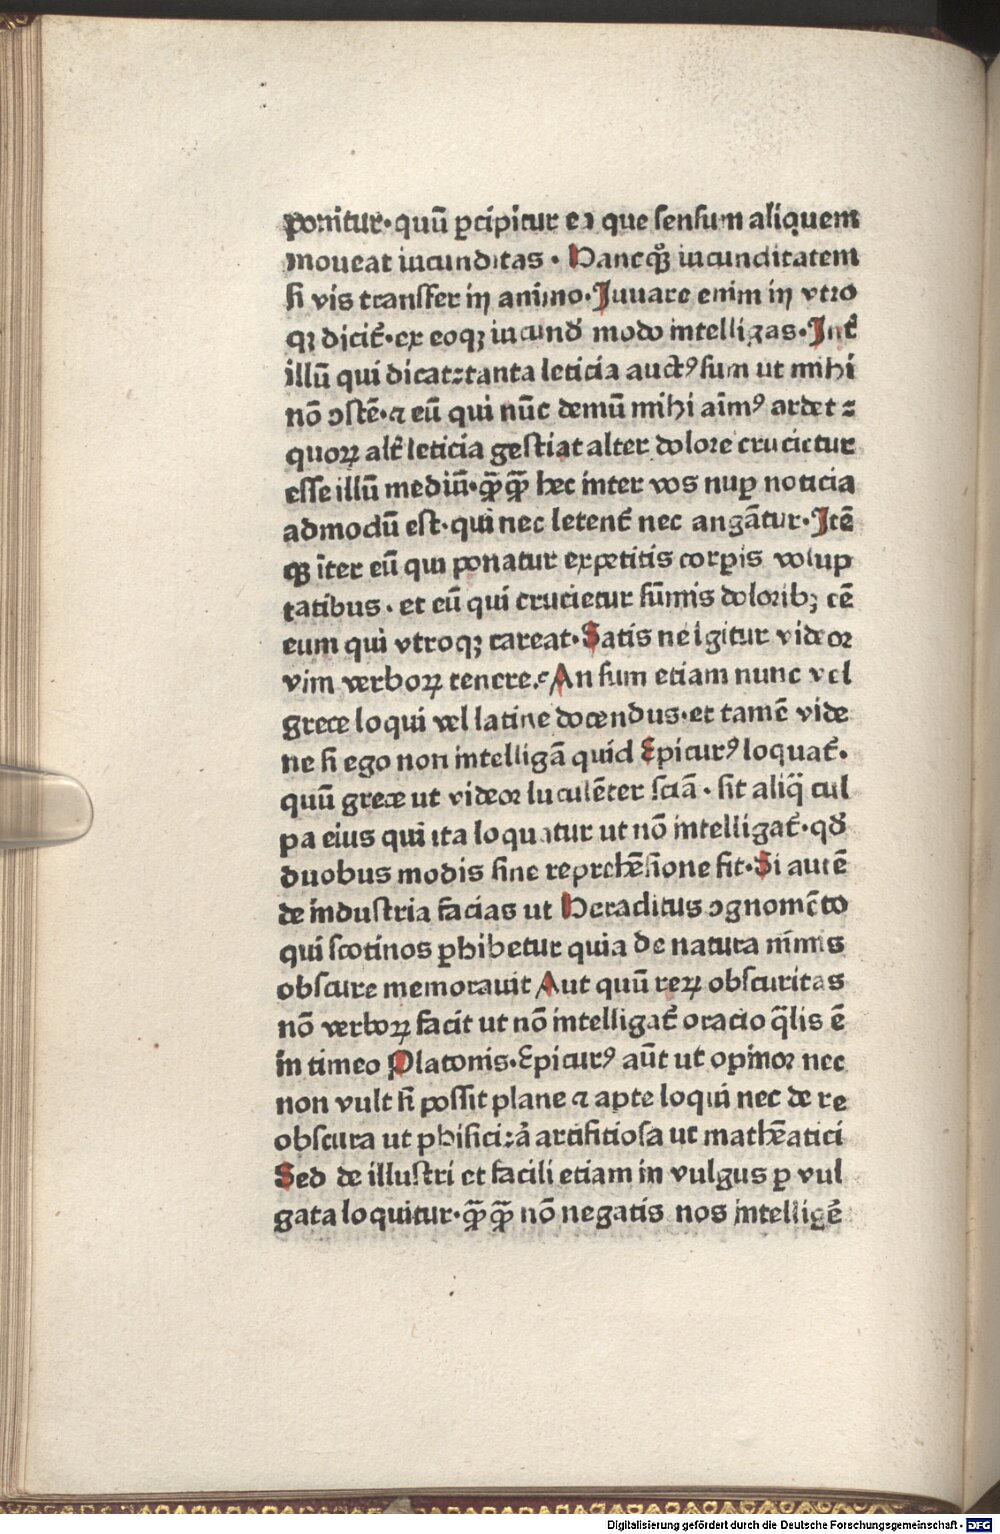 ponitur·quū ꝑcipitur ea que ſenſum aliquem
moueat iucunditas · Hancqꝫ iucunditatem
ſi vis tranſfer in animo·Iuuare enim in vtro
qꝫ dicit᷑·ex eoqꝫ iucund̄ modo intelligas·Int᷑
illū qui dicat⹀tanta leticia auctꝰ ſum ut mihi
nō ↄſtē·⁊ eū qui nūc demū mihi aīmꝰ ardet ⹀
quoꝝ alt᷑ leticia geſtiat alter dolore crucietur
eſſe illū mediū·qͣ̄qͣ̄ hec inter vos nuꝑ noticia
admodū eſt·qui nec letent᷑ nec angātur·Itē
qꝫ īter eū qui ponatur expetitis corꝑis volup
tatibus · et eū qui crucietur ſūmis doloribꝫ cē
eum qui vtroqꝫ careat·Satis ne igitur videor
vim verboꝝ tenere·An ſum etiam nunc vel
grece loqui vel latine docendus·et tamē vide
ne ſi ego non intelligā quid Epicurꝰ loquat᷑·
quū grece ut videor luculēter ſciā · ſit aliq̄ cul
pa eius qui ita loquatur ut nō intelligat᷑·qd̄
duobus modis ſine reprehēſione fit·Si autē
de induſtria facias ut Heraclitus ↄgnomēto
qui ſcotinos ꝑhibetur quia de natura nimis
obſcure memorauit Aut quū reꝝ obſcuritas
nō verboꝝ facit ut nō intelligat᷑ oracio q̄lis ē
in timeo Platonis·Epicurꝰ aūt ut opinor nec
non vult ſi poſſit plane ⁊ apte loqui nec de re
obſcura ut phiſici⹀ā artifitioſa ut mathēatici
Sed de illuſtri et facili etiam in vulgus ꝑ vul
gata loquitur·qͣ̄qͣ̄ nō negatis nos intelligē
Digitalisierung gefördert durch die Deutsche Forschungsgemeinschaft - DFG